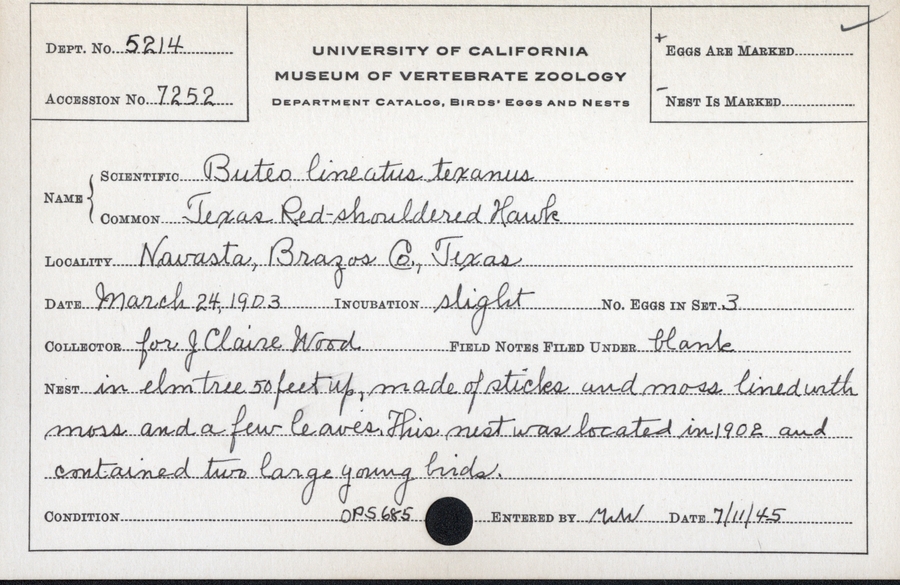 DEPT. No. 5214
ACCESSION No. 7252
UNIVERSITY OF CALIFORNIA
MUSEUM OF VERTEBRATE ZOOLOGY
DEPARTMENT CATALOG, BIRDS' EGGS AND NESTS
+ EGGS ARE MARKED
- NEST IS MARKED
NAME
SCIENTIFIC Buteo lineatus texanus
COMMON Texas Red-shouldered Hawk
LOCALITY Navasta, Brazos Co., Texas
DATE March 24, 1903 INCUBATION slight NO. EGGS IN SET 3
COLLECTOR for J Claire Wood FIELD NOTES FILED UNDER blank
NEST in elm tree 50 feet up, made of sticks and moss lined with
moss and a few leaves. This nest was located in 1902 and
contained two large young birds.
CONDITION OPS685 ENTERED BY MW DATE 7/11/45